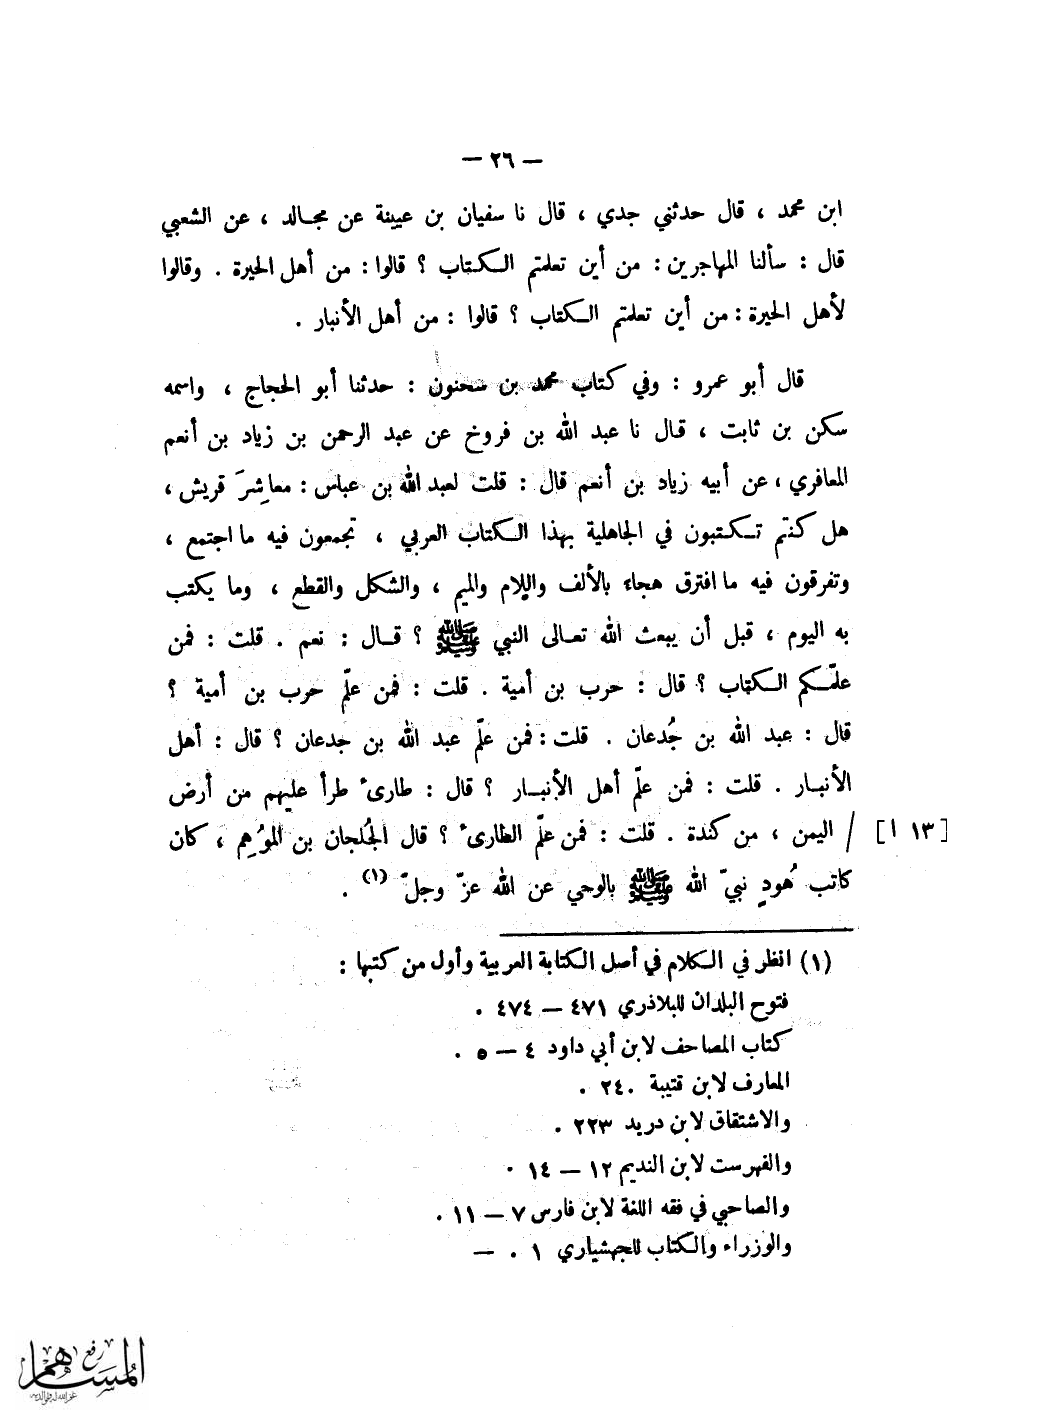 — ٢٦ —
ابن محمد ، قال حدثني جدي ، قال نا سفيان بن عيينة عن مجالد ، عن الشعبي
قال : سألنا المهاجرين : من أين تعلمتم الكتاب ؟ قالوا : من أهل الحيرة . وقالوا
لأهل الحيرة : من أين تعلمتم الكتاب ؟ قالوا : من أهل الأنبار .
قال أبو عمرو : وفي كتاب محمد بن سحنون : حدثنا أبو الحجاج ، واسمه
سكن بن ثابت ، قال نا عبد الله بن فروخ عن عبد الرحمن بن زياد بن أنعم
المعافري ، عن أبيه زياد بن أنعم قال : قلت لعبد الله بن عباس : معاشِرَ قريش ،
هل كنتم تكتبون في الجاهلية بهذا الكتاب العربي ، تجمعون فيه ما اجتمع ،
وتفرقون فيه ما افترق هجاء بالألف واللام والميم ، والشكل والقطع ، وما يكتب
به اليوم ، قبل أن يبعث الله تعالى النبي ﷺ ؟ قال : نعم . قلت : فمن
علّمكم الكتاب ؟ قال : حرب بن أمية . قلت : فمن علّم حرب بن أمية ؟
قال : عبد الله بن جُدعان . قلت : فمن علّم عبد الله بن جدعان ؟ قال : أهل
الأنبار . قلت : فمن علّم أهل الأنبار ؟ قال : طارىء طرأ عليهم من أرض
[ ١٣ ا ] / اليمن ، من كندة . قلت : فمن علّم الطارىء ؟ قال الجُلجان بن المُوهِم ، كان
كاتب هُودٍ نبيّ الله ﷺ بالوحي عن الله عزّ وجلّ (١) .
(١) انظر في الكلام في أصل الكتابة العربية وأول من كتبها :
فتوح البلدان للبلاذري ٤٧١ — ٤٧٤ .
كتاب المصاحف لابن أبي داود ٤ — ٥ .
المعارف لابن قتيبة ٢٤٠ .
والاشتقاق لابن دريد ٢٢٣ .
والفهرست لابن النديم ١٢ — ١٤ .
والصاحبي في فقه اللغة لابن فارس ٧ — ١١ .
والوزراء والكتاب للجهشياري ١ . —
رفع
المساهم
غفر الله له ولوالديه